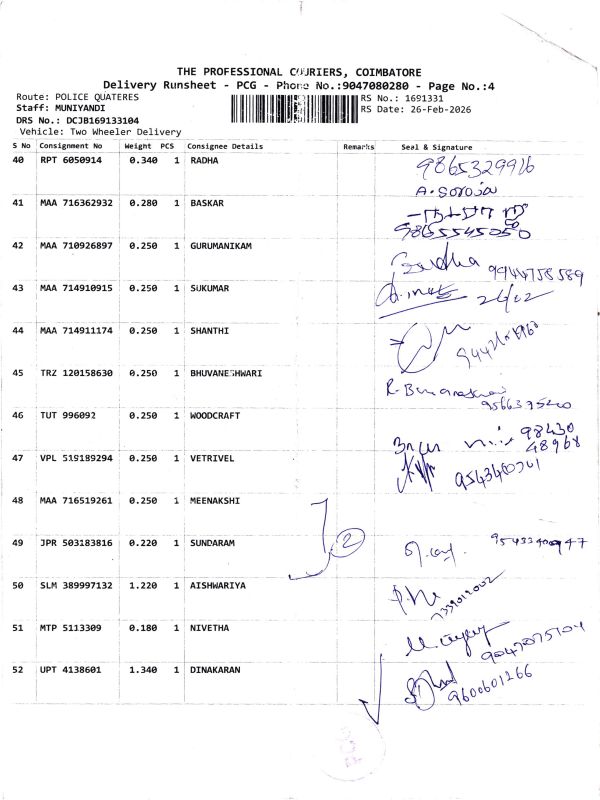 THE PROFESSIONAL COURIERS, COIMBATORE
Delivery Runsheet - PCG - Phone No.:9047080280 - Page No.:4
Route: POLICE QUATERES
RS No.: 1691331
Staff: MUNIYANDI
RS Date: 26-Feb-2026
DRS No.: DCJB169133104
Vehicle: Two Wheeler Delivery
S No Consignment No Weight PCS Consignee Details Remarks Seal & Signature
40 RPT 6050914 0.340 1 RADHA 9865329916
A. Soroja
41 MAA 716362932 0.280 1 BASKAR
42 MAA 710926897 0.250 1 GURUMANIKAM
9944758589
43 MAA 714910915 0.250 1 SUKUMAR 26/02
44 MAA 714911174 0.250 1 SHANTHI
45 TRZ 120158630 0.250 1 BHUVANESHWARI
46 TUT 996092 0.250 1 WOODCRAFT
98430
48968
47 VPL 519189294 0.250 1 VETRIVEL
48 MAA 716519261 0.250 1 MEENAKSHI
49 JPR 503183816 0.220 1 SUNDARAM 2
50 SLM 389997132 1.220 1 AISHWARIYA
51 MTP 5113309 0.180 1 NIVETHA
52 UPT 4138601 1.340 1 DINAKARAN
9600601266